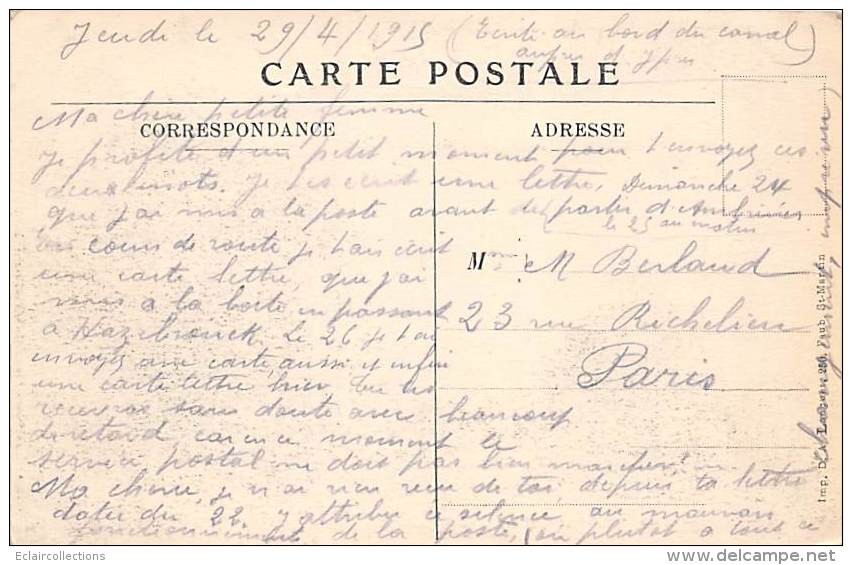 Jeudi le 29/4/1915 (Ecrite au bord du canal)
auprès d'Ypres
CARTE POSTALE
Ma chère petite femme
CORRESPONDANCE
ADRESSE
Je profite d'un petit moment pour t'envoyer ces
deux mots. Je t'ai écrit une lettre, Dimanche 24
que j'ai mis à la poste avant de partir
le 25 au matin
En cours de route je t'ai écrit
une carte lettre, que j'ai
mis à la boîte en passant
à Hazebrouck. Le 26 je t'ai
envoyé une carte aussi, et enfin
une carte lettre hier. Tu les
recevras sans doute avec beaucoup
de retard, car en ce moment le
service postal ne doit pas bien marcher.
Ma chère, je n'ai rien reçu de toi, depuis ta lettre
datée du 22. J'attribue ce silence au mauvais
fonctionnement de la poste, ou plutôt à tout ce
Mme M Berland
23 rue Richelieu
Paris
Imp. D. A. 250, Faub. St-Martin
Eclaircollections
www.delcampe.net